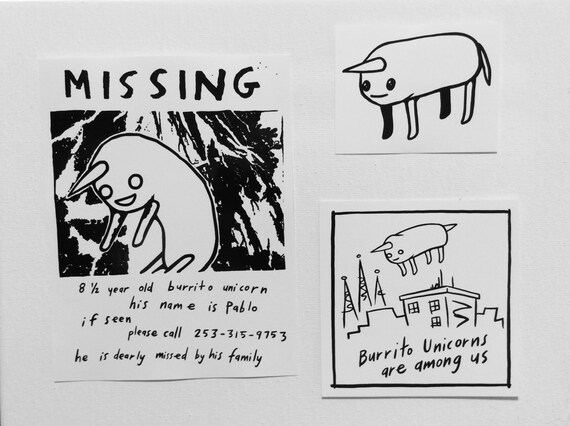 MISSING
8 ½ year old burrito unicorn
his name is Pablo
if seen
please call 253-315-9753
he is dearly missed by his family
Burrito Unicorns
are among us